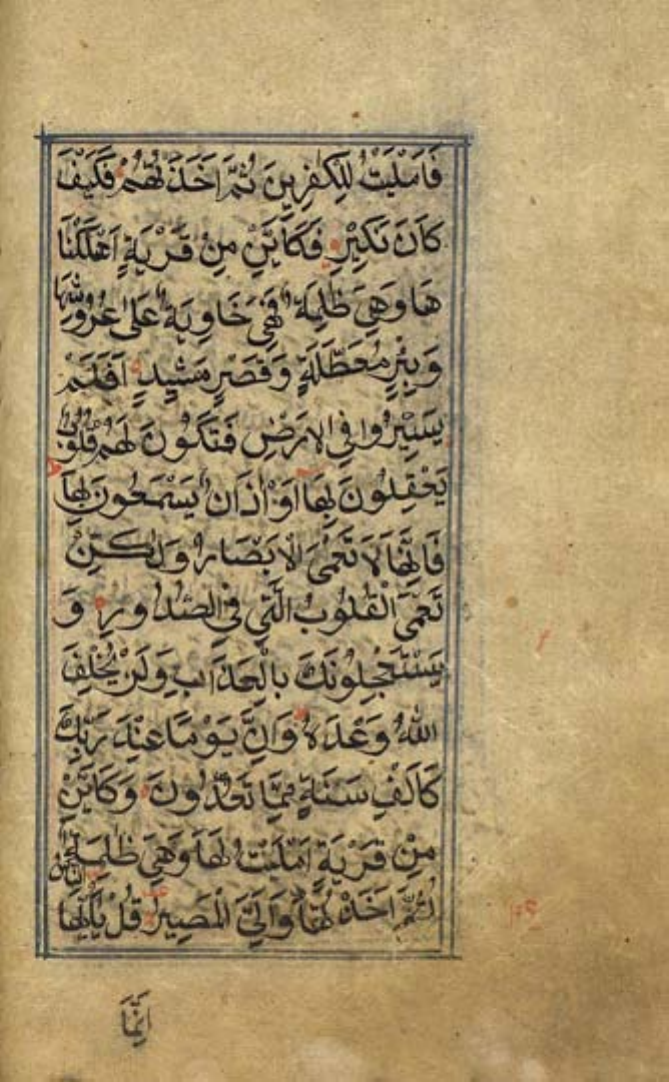 فَاَمْلَيْتُ لِلْكٰفِرِيْنَ ثُمَّ اَخَذْتُهُمْ فَكَيْفَ
كَانَ نَكِيْرِ فَكَاَيِّنْ مِنْ قَرْيَةٍ اَهْلَكْنَا
هَا وَهِيَ ظَالِمَةٌ فَهِيَ خَاوِيَةٌ عَلٰى عُرُوْشِهَا
وَبِئْرٍ مُعَطَّلَةٍ وَقَصْرٍ مَشِيْدٍ اَفَلَمْ
يَسِيْرُوا فِي الْاَرْضِ فَتَكُوْنَ لَهُمْ قُلُوْبٌ
يَعْقِلُوْنَ بِهَا اَوْ اٰذَانٌ يَسْمَعُوْنَ بِهَا
فَاِنَّهَا لَا تَعْمَى الْاَبْصَارُ وَلٰكِنْ
تَعْمَى الْقُلُوْبُ الَّتِيْ فِي الصُّدُوْرِ وَ
يَسْتَعْجِلُوْنَكَ بِالْعَذَابِ وَلَنْ يُخْلِفَ
اللّٰهُ وَعْدَهُ وَاِنَّ يَوْمًا عِنْدَ رَبِّكَ
كَاَلْفِ سَنَةٍ مِمَّا تَعُدُّوْنَ وَكَاَيِّنْ
مِنْ قَرْيَةٍ اَمْلَيْتُ لَهَا وَهِيَ ظَالِمَةٌ
ثُمَّ اَخَذْتُهَا وَاِلَيَّ الْمَصِيْرُ قُلْ يٰاَيُّهَا النَّاسُ
اِنَّمَا